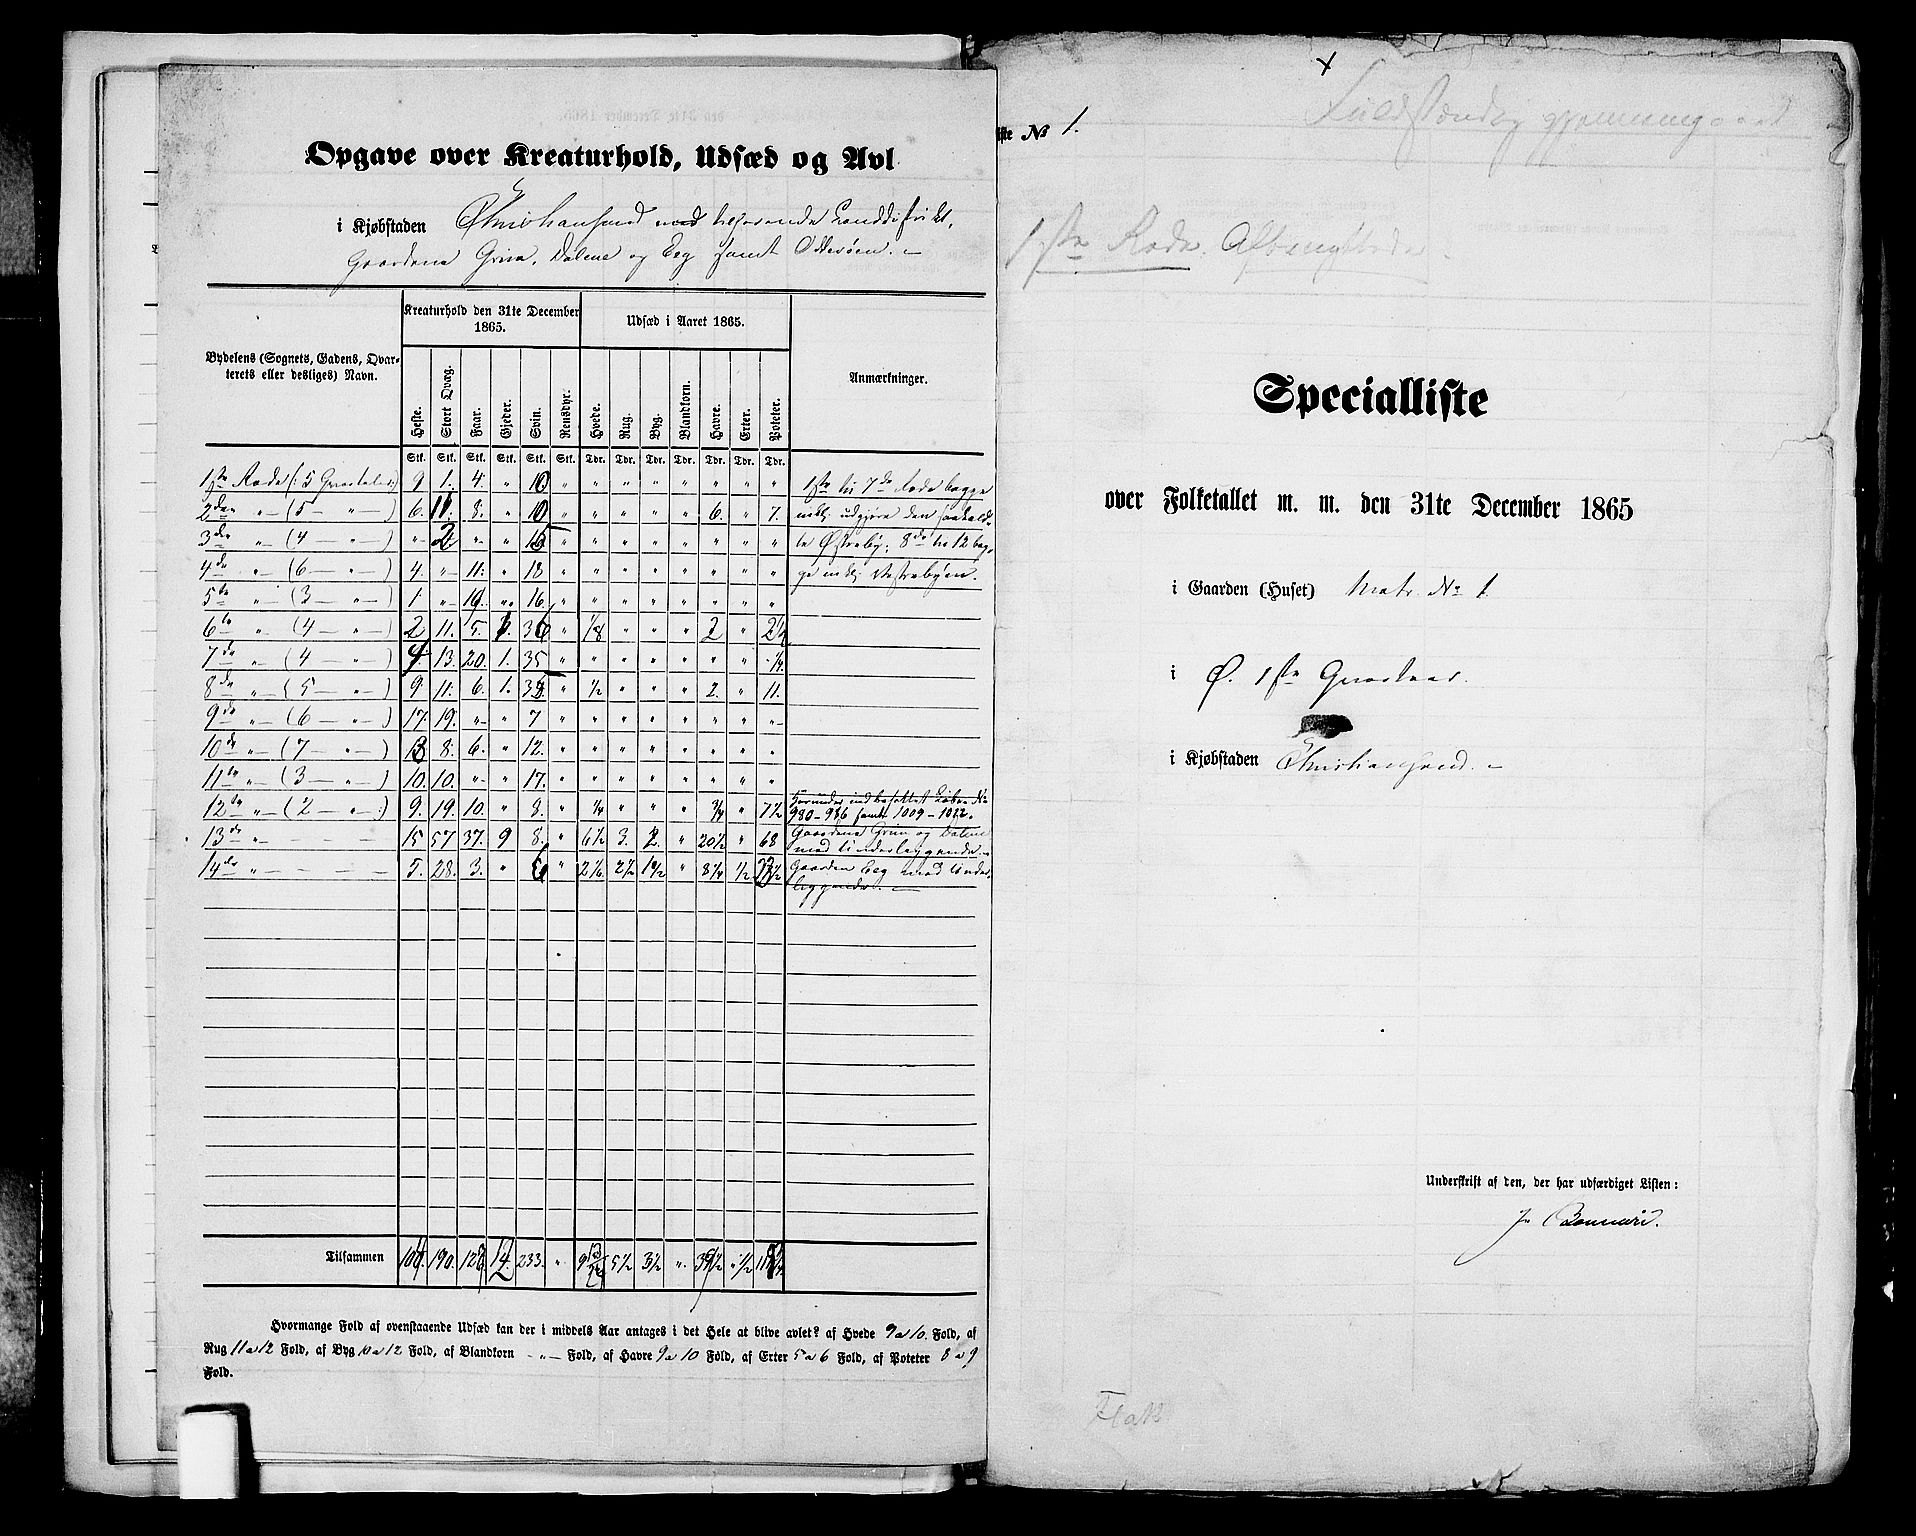 Opgave over Kreaturhold, Udsæd og Avl
i Kjøbstaden Christiansand med tilhørende Landdistrikt,
Gaardene Grim, Dalene og Eeg samt Odderøen. –
Bydelens (Sognets, Gadens, Qvarterets eller desliges) Navn.
Kreaturhold den 31te December 1865.
Udsæd i Aaret 1865.
Anmærkninger.
Heste. Stort Qvæg. Faar. Gjeder. Svin. Rensdyr. Hvede. Rug. Byg. Blandkorn. Havre. Erter. Poteter.
Stk. Stk. Stk. Stk. Stk. Stk. Tdr. Tdr. Tdr. Tdr. Tdr. Tdr. Tdr.
1ste Rode (: 5 Qvartaler :) 9 1. 4. " 10 " " " " " " " " 1ste til 7de Rode begge
2den " (5 — " —) 6. 11. 8. " 10 " " " " " 6. " 7. inkl. udgjøre den saakald-
3die " (4 — " —) " 2 " " 15 " " " " " " " " te Østreby; 8de til 12 beg-
4de " (6 — " —) 4. " 11. " 18 " " " " " " " " ge inkl. Vestrebyen.
5te " (3 — " —) 1. " 19. " 16. " " " " " " " "
6te " (4 — " —) 2 11. 5. 1. 36 " 1/8 " " " 2 "
7de " (4 — " —) 4 13. 20. 1. 35 " " " " " " " 1/4.
8de " (5 — " —) 9. 11. 6. 1. 35 " 1/2 " " " 2. " 11.
9de " (6 — " —) 17. 19. " " 7 " " " " " " " "
10de " (7 — " —) 13 8. 6. " 12. " " " " " " " "
11te " (3 — " —) 10. 10. " " 17. " " " " " " " "
12te " (2 — " — :) 9. 19. 10. " 8. " 1/4 " " " 3/4 " 7 1/2 Herunder indbefattet Løbe No
980–986 samt 1009–1022.
13de " — — — 15 57 37. 9 8. " 6 1/2 3. 2. " 20 1/2 " 68 Gaardene Grim og Dalene
med Underliggende. –
14de " — — — 5. 28. 3. " 6 " " Gaarden Eeg med Under-
liggende. —
Tilsammen 190. 233. " 5 1/2 3 1/2 " 1/2
Hvormange Fold af ovenstaaende Udsæd kan der i middels Aar antages i det Hele at blive avlet? af Hvede 9 a 10. Fold, af
Rug 11 a 12 Fold, af Byg 10 a 12 Fold, af Blandkorn — " — Fold, af Havre 9 a 10 Fold, af Erter 5 a 6 Fold, af Poteter 8 a 9
Fold.
iste No 1.
Fuldstændig
1ste Rode.
Specialliste
over Folketallet m. m. den 31te December 1865
i Gaarden (Huset) Matr. No 1
i Ø. 1ste Qvartal.
i Kjøbstaden Christiansand. –
Underskrift af den, der har udfærdiget Listen: